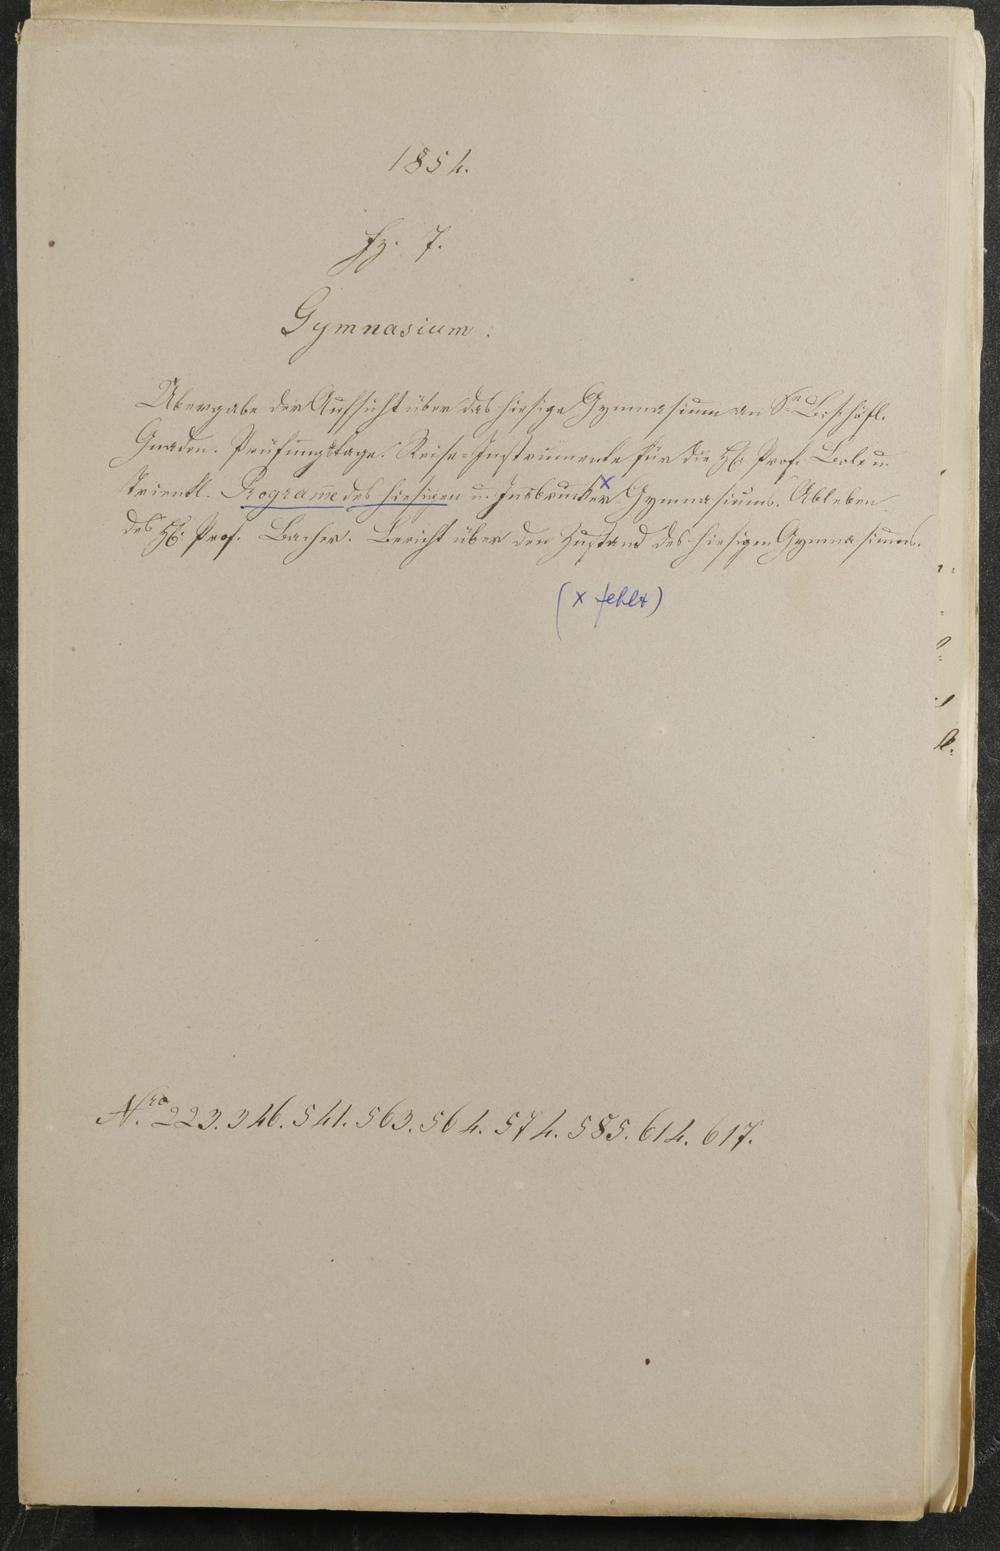 1854.
Fz. 7.
Gymnasium:
Übergabe der Aufsicht über das hiesige Gymnasium an Sr Bischöfl.
Gnaden. Prüfungstage. Reise-Instrumente für die HH. Prof. Bole u.
Trientl. Programe des hiesigen u. Insbrucker x Gymnasiums. Ableben
des H. Prof. Bacher. Bericht über den Zustand des hiesigen Gymnasiums.
(x fehlt)
Nro 223. 346. 541. 563. 564. 574. 585. 614. 617.